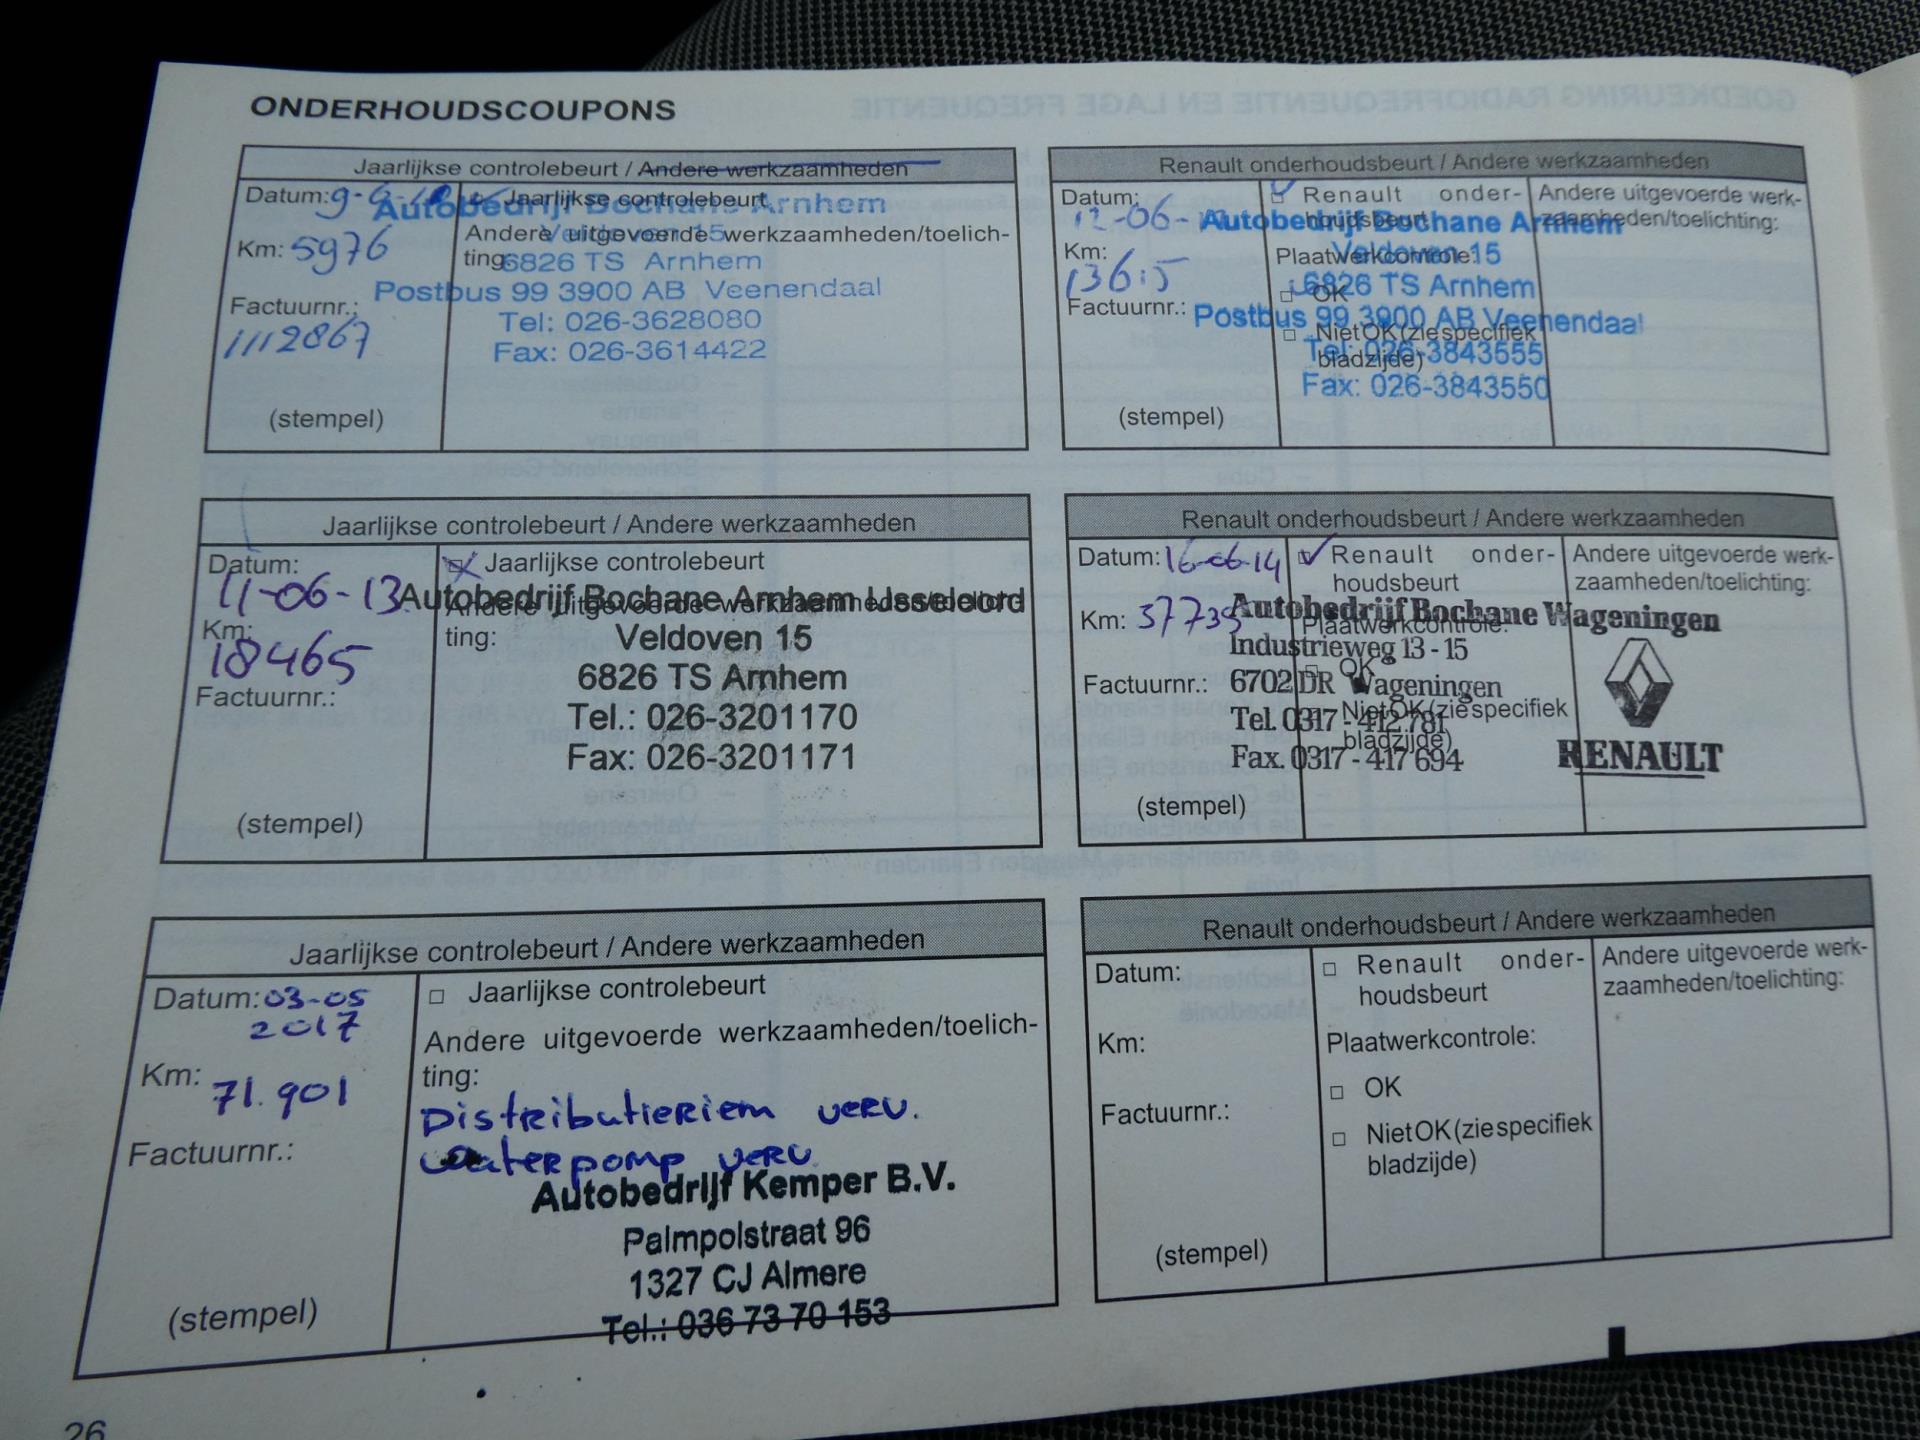 ONDERHOUDSCOUPONS
Jaarlijkse controlebeurt / Andere werkzaamheden
Datum:
Jaarlijkse controlebeurt
Autobedrijf Bochane Arnhem
Veldoven 15
Km: 5976
Andere uitgevoerde werkzaamheden/toelich-
ting:
6826 TS Arnhem
Postbus 99 3900 AB Veenendaal
Factuurnr.:
1112867
Tel: 026-3628080
Fax: 026-3614422
(stempel)
Renault onderhoudsbeurt / Andere werkzaamheden
Datum:
12-06-
Renault onder-
houdsbeurt
Andere uitgevoerde werk-
zaamheden/toelichting:
Autobedrijf Bochane Arnhem
Veldoven 15
Km:
Plaatwerkcontrole:
OK
6826 TS Arnhem
Factuurnr.:
Postbus 99 3900 AB Veenendaal
Niet OK (zie specifiek
bladzijde)
Tel: 026-3843555
Fax: 026-3843550
(stempel)
Jaarlijkse controlebeurt / Andere werkzaamheden
Datum:
11-06-13
Jaarlijkse controlebeurt
Andere uitgevoerde werkzaamheden/toelich-
ting:
Autobedrijf Bochane Arnhem IJsseloord
Km:
18465
Veldoven 15
6826 TS Arnhem
Factuurnr.:
Tel.: 026-3201170
Fax: 026-3201171
(stempel)
Renault onderhoudsbeurt / Andere werkzaamheden
Datum: 16-06-14
Renault onder-
houdsbeurt
Andere uitgevoerde werk-
zaamheden/toelichting:
Km: 37735
Autobedrijf Bochane Wageningen
Plaatwerkcontrole:
Industrieweg 13 - 15
OK
Factuurnr.:
6702 DR Wageningen
Niet OK (zie specifiek
bladzijde)
Tel. 0317 - 412 781
Fax. 0317 - 417 694
RENAULT
(stempel)
Jaarlijkse controlebeurt / Andere werkzaamheden
Datum: 03-05
2017
Jaarlijkse controlebeurt
Km:
71.901
Andere uitgevoerde werkzaamheden/toelich-
ting:
Distributieriem verv.
waterpomp verv
Factuurnr.:
Autobedrijf Kemper B.V.
Palmpolstraat 96
1327 CJ Almere
Tel.: 036 73 70 153
(stempel)
Renault onderhoudsbeurt / Andere werkzaamheden
Datum:
Renault onder-
houdsbeurt
Andere uitgevoerde werk-
zaamheden/toelichting:
Km:
Plaatwerkcontrole:
OK
Factuurnr.:
Niet OK (zie specifiek
bladzijde)
(stempel)
26